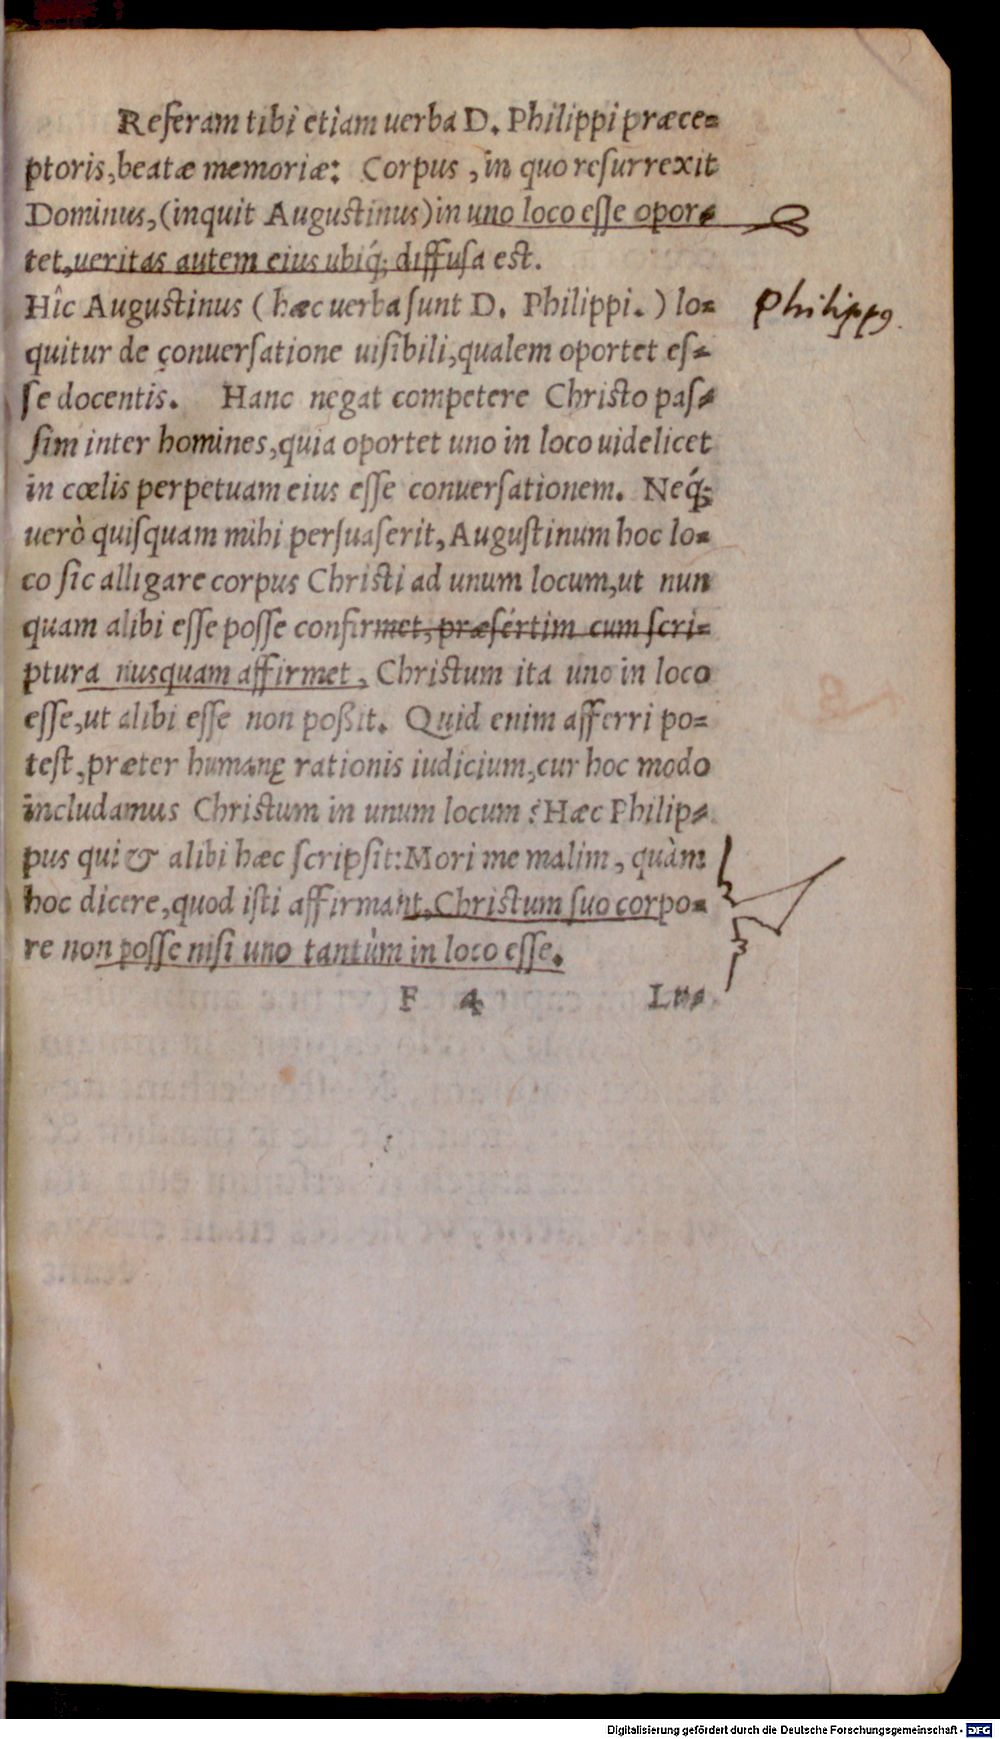 Referam tibi etiam uerba D. Philippi præce=
ptoris, beatæ memoriæ: Corpus, in quo resurrexit
Dominus, (inquit Augustinus) in uno loco esse opor=
tet, ueritas autem eius ubiq́; diffusa est.
Hîc Augustinus (hæc uerba sunt D. Philippi.) lo=
Philippus.
quitur de conuersatione uisibili, qualem oportet es=
se docentis. Hanc negat competere Christo pas=
sim inter homines, quia oportet uno in loco uidelicet
in cœlis perpetuam eius esse conuersationem. Neq́;
uerò quisquam mihi persuaserit, Augustinum hoc lo=
co sic alligare corpus Christi ad unum locum, ut nun
quam alibi esse posse confirmet, præsértim cum scri=
ptura nusquam affirmet, Christum ita uno in loco
esse, ut alibi esse non poßit. Quid enim afferri po=
test, præter humanę rationis iudicium, cur hoc modo
includamus Christum in unum locum? Hæc Philip=
pus qui & alibi hæc scripsit: Mori me malim, quàm
hoc dicere, quod isti affirmant, Christum suo corpo=
re non posse nisi uno tantùm in loco esse.
F 4 Lu=
Digitalisierung gefördert durch die Deutsche Forschungsgemeinschaft - DFG